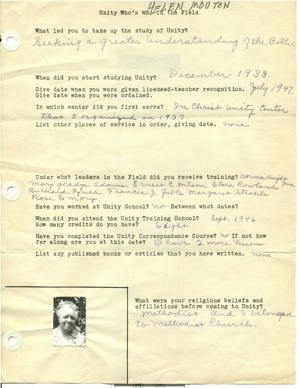 HELEN MOUTON
Unity Who's Who in the Field
What led you to take up the study of Unity?
Seeking a greater understanding of the Bible
When did you start studying Unity? December 1933.
Give date when you were given licensed-teacher recognition. July 1947.
Give date when you were ordained.
In which center did you first serve? In Christ Unity Center
that I organized in 1937
List other places of service in order, giving date. none
Under what leaders in the Field did you receive training?
Mary Gladys Adams Ernest C. Wilson Clara Rowland
Richard Lynch Frances J. Gable Margaret
Rose Emory
Have you worked at Unity School? no Between what dates?
When did you attend the Unity Training School? Sept. 1946
How many credits do you have? Eight
Have you completed the Unity Correspondence Course? no If not how
far along are you at this date? I have 2 more lessons
List any published books or articles that you have written. none
What were your religious beliefs and
affiliations before coming to Unity?
Methodist and I belonged
to Methodist Church.